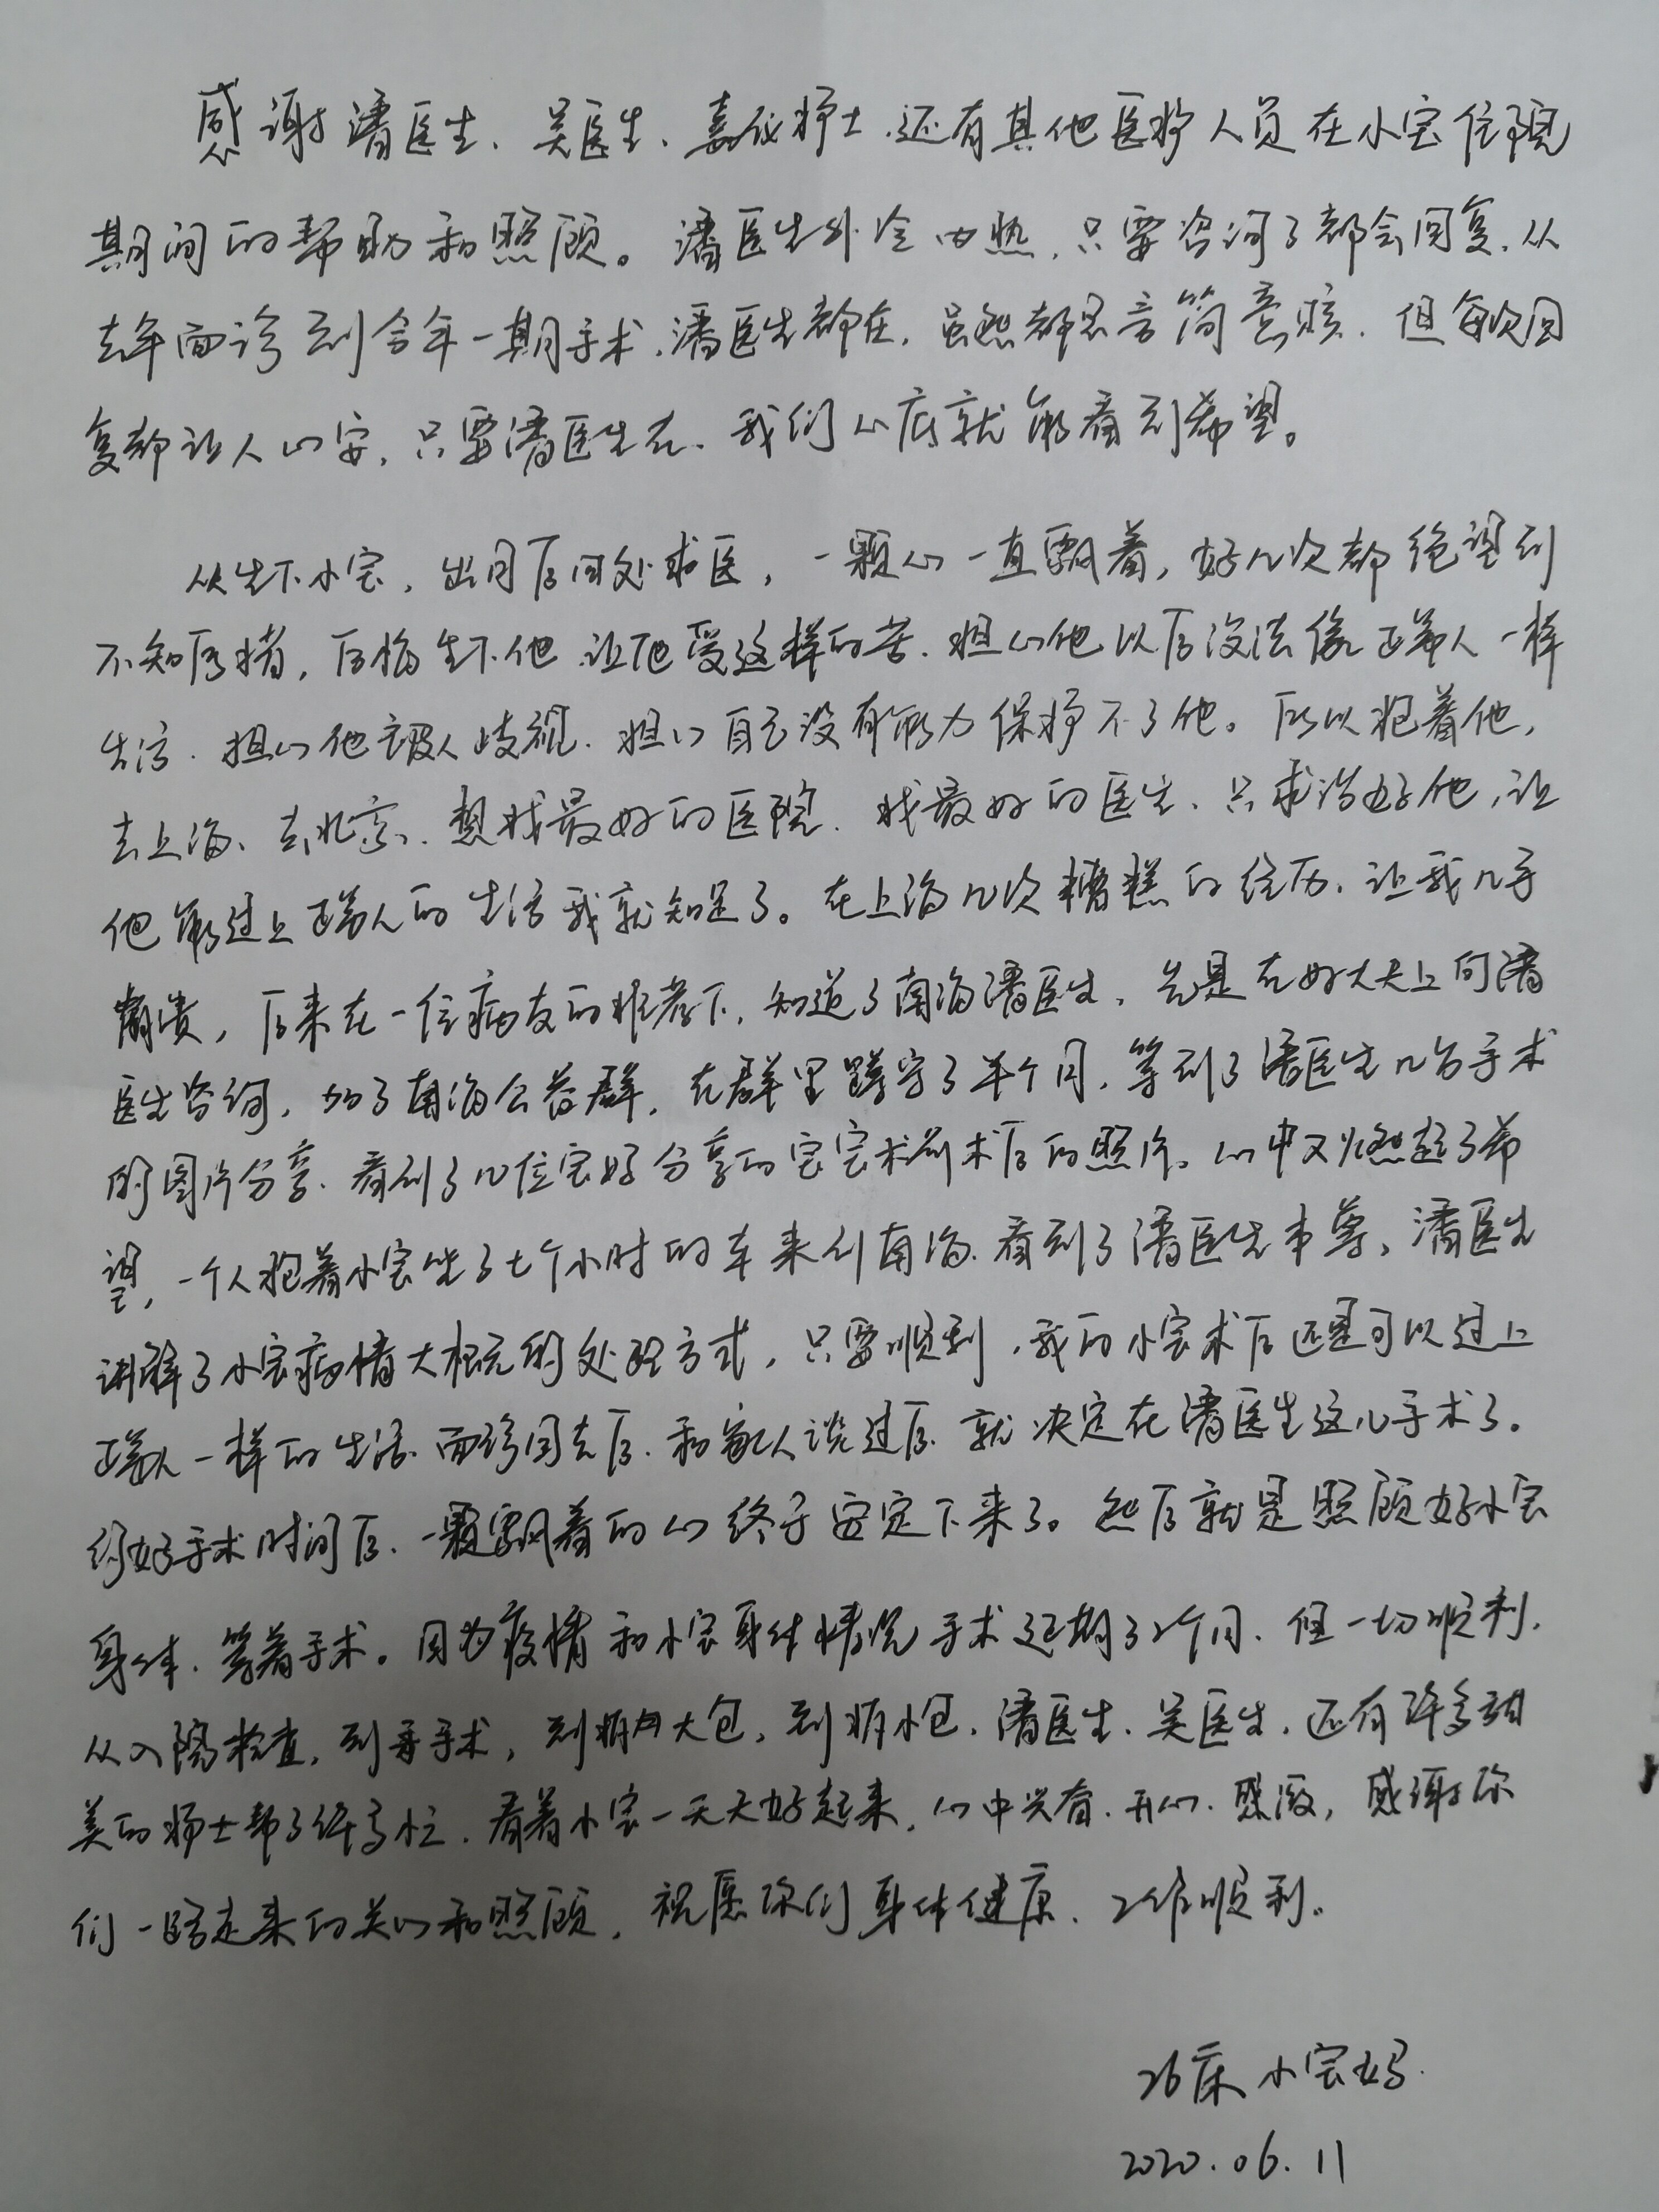 感谢潘医生、吴医生、嘉仪护士、还有其他医护人员在小宝住院
期间的帮助和照顾。潘医生外冷内热，只要咨询了都会回复，从
去年面诊到今年一期手术，潘医生都在，虽然都是言简意赅，但每次回
复都让人心安，只要潘医生在、我们心底就能看到希望。
从生下小宝，出月后四处求医，一颗心一直飘着，好几次都绝望到
不知所措，后悔生下他让他受这样的苦、担心他以后没法像正常人一样
生活、担心他被人歧视、担心自己没有能力保护不了他。所以抱着他，
去上海、去北京、想找最好的医院、找最好的医生、只求治好他，让
他能过上正常人的生活我就知足了。在上海几次糟糕的经历，让我几乎
崩溃，后来在一位病友的推荐下，知道了南海潘医生，先是在好大夫上向潘
医生咨询，加了南海公益群，在群里蹲守了半个月，等到了潘医生几台手术
的图片分享、看到了几位宝妈分享的宝宝术前术后的照片。心中又燃起了希
望，一个人抱着小宝坐了七个小时的车来到南海、看到了潘医生本尊，潘医生
讲解了小宝病情大概的处理方式，只要顺利，我的小宝术后还是可以过上
正常人一样的生活、面诊回去后、和家人谈过后、就决定在潘医生这儿手术了。
约好手术时间后、一颗飘着的心终于安定下来了。然后就是照顾好小宝
身体、等着手术。因为疫情和小宝身体情况手术延期了2个月、但一切顺利，
从入院检查，到手术，到拆大包，到拆小包，潘医生、吴医生、还有许多甜
美的护士帮了许多忙、看着小宝一天天好起来，心中兴奋、开心、感激，感谢你
们一路走来的关心和照顾，祝愿你们身体健康、工作顺利。
26床小宝妈
2020.06.11